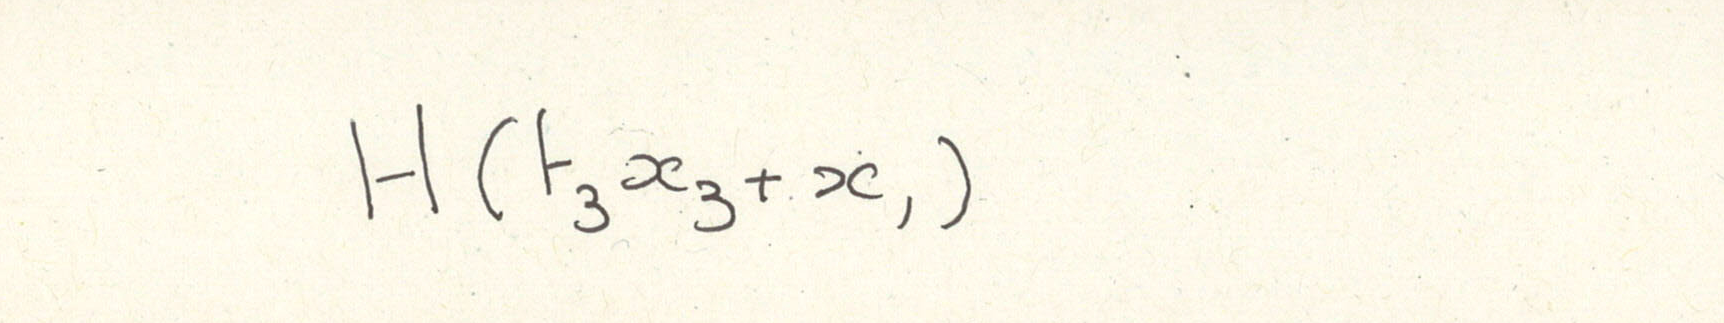 H(t₃x₃+x₁)